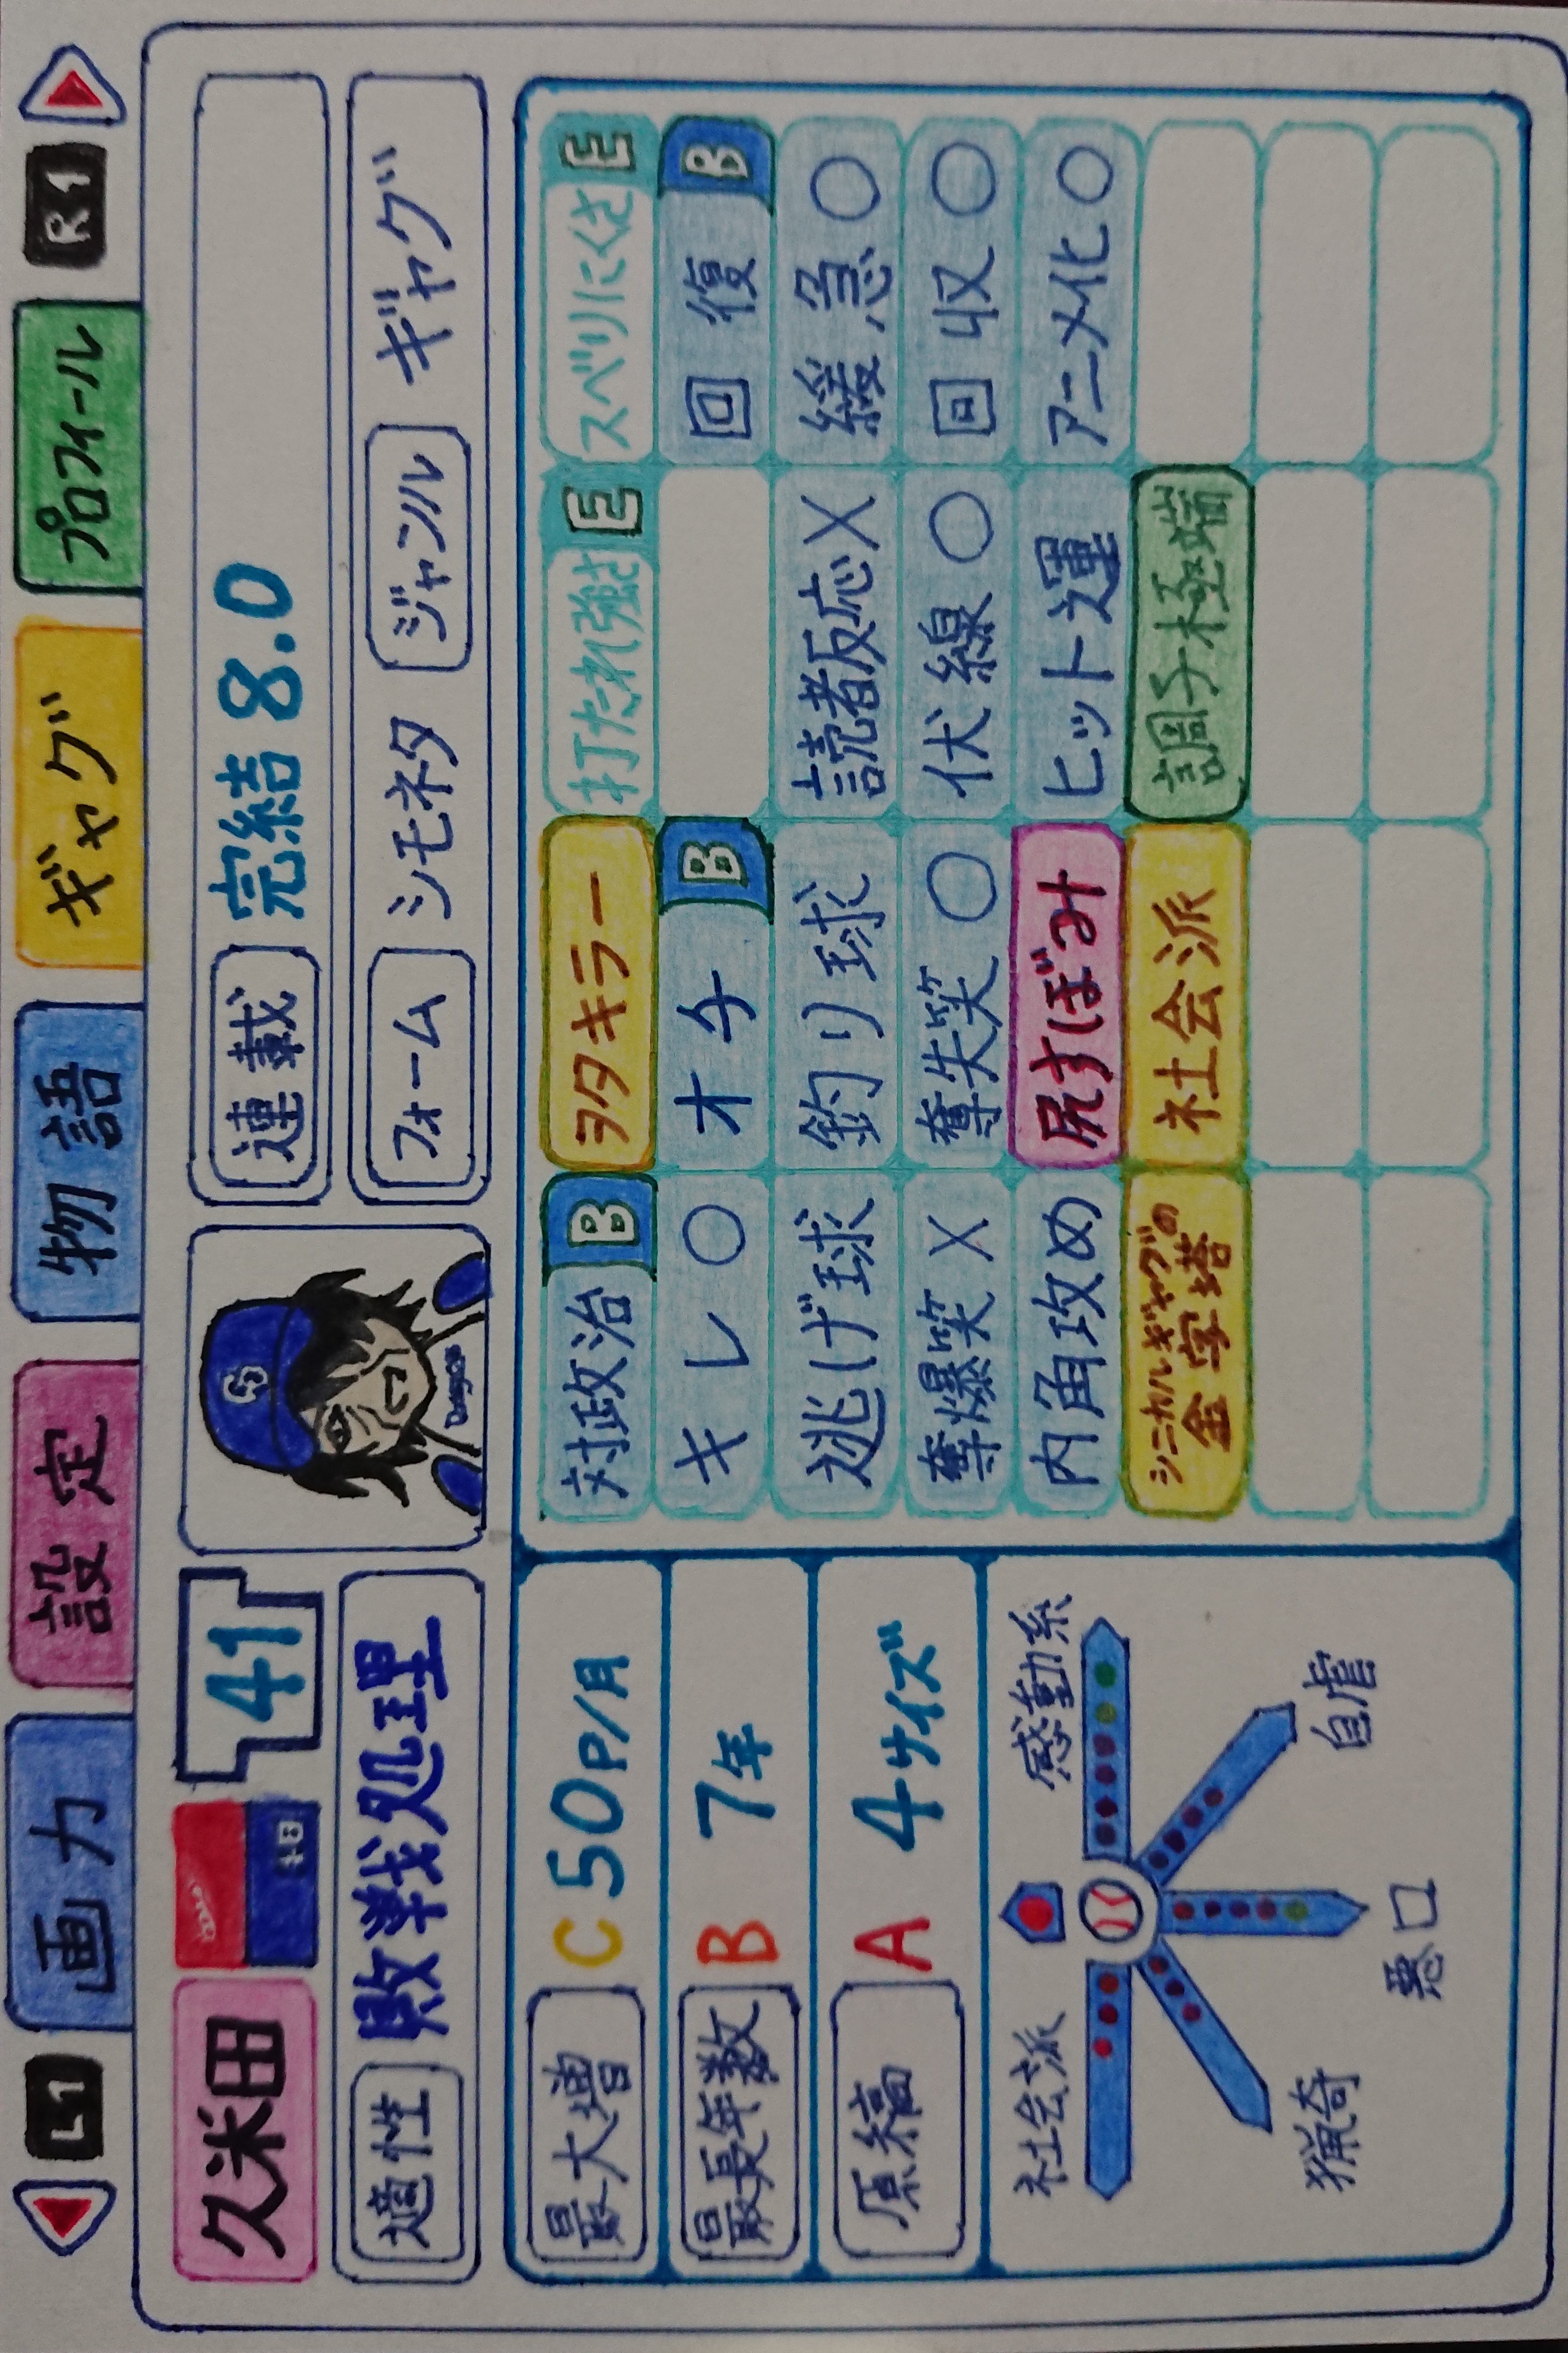 L1 画力 設定 物語 ギャグ プロフィール R1
久米田 41
連載 完結 8.0
適性 敗戦処理
フォーム シモネタ ジャンル ギャグ
Dragons
最大増 C 50P/月
最長年数 B 7年
原稿 A 4サイズ
社会派 感動系
猟奇 悪口 自虐
対政治 B ヲタキラー 打たれ強さ E スベリにくさ E
キレ ○ オチ B 回復 B
逃げ球 釣り球 読者反応 X 緩急 ○
奪爆笑 X 奪失笑 ○ 伏線 ○ 回収 ○
内角攻め 尻すぼみ ヒット運 アニメ化 ○
シニカルギャグの金字塔 社会派 調子極端